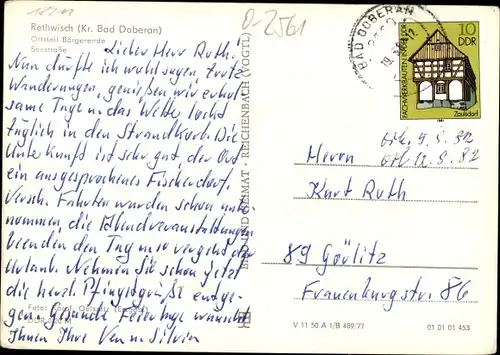 D-2561
Rethwisch (Kr. Bad Doberan)
Ortsteil Börgerende
Seestraße
Lieber Herr Ruth.
Nun dürfte ich wohl sagen, trotz
Wanderungen, genießen wir erhol-
same Tage u. das Wetter lockt
täglich in den Strandkorb. Die
Unterkunft ist sehr gut, der Ort
ein ausgesprochenes Fischerdorf.
Versch. Fahrten wurden schon unter-
nommen, die Abendveranstaltungen
beenden den Tag u. so vergeht der
Urlaub. Nehmen Sie schon jetzt
die herzl. Pfingstgrüße entge-
gen. Gesunde Feiertage wünscht
Ihnen Ihre
Foto:
BILD UND HEIMAT · REICHENBACH (VOGTL)
V 11 50 A 1/B 489/77
01 01 01 453
BAD DOBERAN
10
DDR
FACHWERKBAUTEN IN DER DDR
Zaulsdorf
1981
Herrn
Kurt Ruth
89 Görlitz
Frauenburgstr. 86